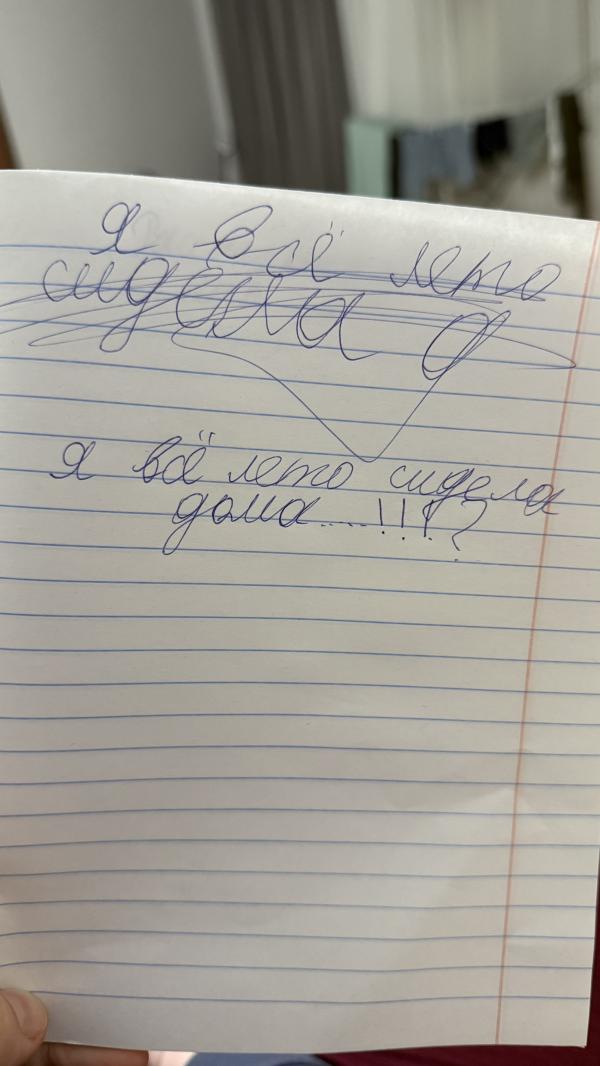 Я всё лето
сидела д
Я всё лето сидела
дома.....!!!?